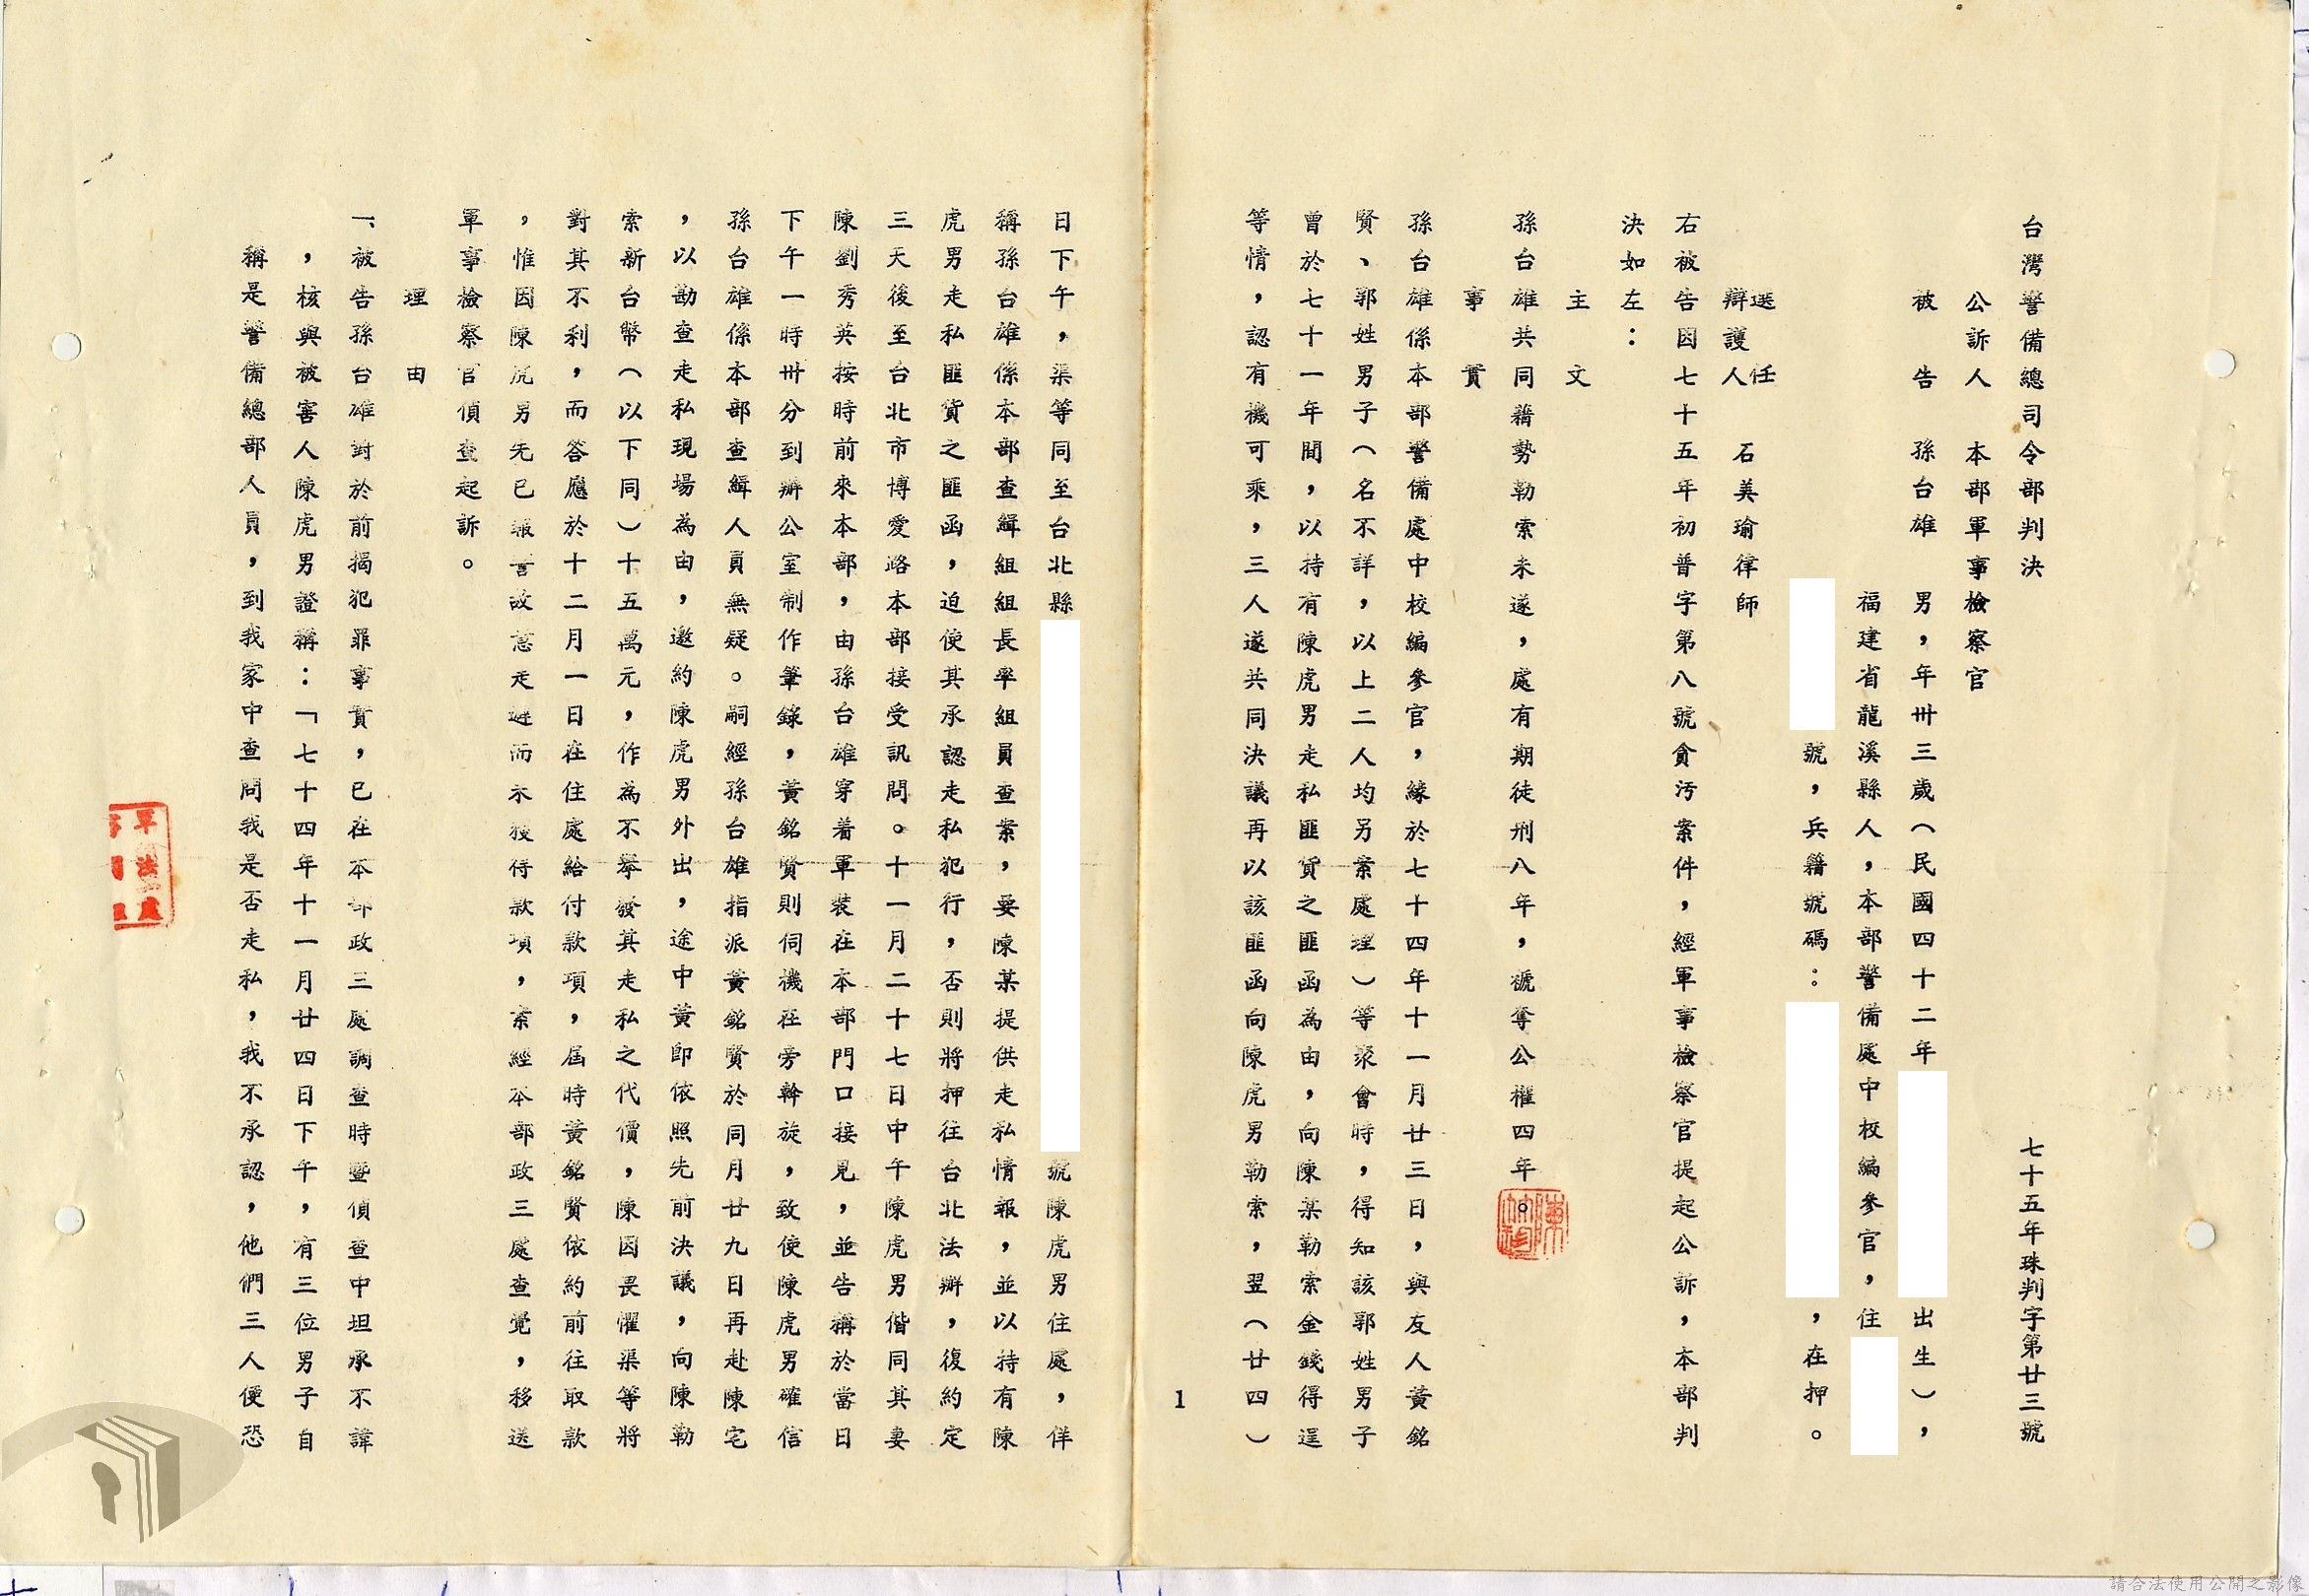 台灣警備總司令部判決　七十五年珠判字第廿三號
公訴人　本部軍事檢察官
被告　孫台雄　男，年卅三歲（民國四十二年　出生），
福建省龍溪縣人，本部警備處中校編參官，住
號，兵籍號碼：　，在押。
選任
辯護人　石美瑜律師
右被告因七十五年初普字第八號貪污案件，經軍事檢察官提起公訴，本部判
決如左：
主文
孫台雄共同藉勢勒索未遂，處有期徒刑八年，褫奪公權四年。
事實
孫台雄係本部警備處中校編參官，緣於七十四年十一月廿三日，與友人黃銘
賢、郭姓男子（名不詳，以上二人均另案處理）等聚會時，得知該郭姓男子
曾於七十一年間，以持有陳虎男走私匪貨之匪函為由，向陳某勒索金錢得逞
等情，認有機可乘，三人遂共同決議再以該匪函向陳虎男勒索，翌（廿四）
1
日下午，渠等同至台北縣　號陳虎男住處，佯
稱孫台雄係本部查緝組組長率組員查案，要陳某提供走私情報，並以持有陳
虎男走私匪貨之匪函，迫使其承認走私犯行，否則將押往台北法辦，復約定
三天後至台北市博愛路本部接受訊問。十一月二十七日中午陳虎男偕同其妻
陳劉秀英按時前來本部，由孫台雄穿着軍裝在本部門口接見，並告稱於當日
下午一時卅分到辦公室制作筆錄，黃銘賢則伺機在旁斡旋，致使陳虎男確信
孫台雄係本部查緝人員無疑。嗣經孫台雄指派黃銘賢於同月廿九日再赴陳宅
，以勘查走私現場為由，邀約陳虎男外出，途中黃即依照先前決議，向陳勒
索新台幣（以下同）十五萬元，作為不舉發其走私之代價，陳因畏懼渠等將
對其不利，而答應於十二月一日在住處給付款項，屆時黃銘賢依約前往取款
，惟因陳虎男先已報警故意走避而未獲得款項，案經本部政三處查覺，移送
軍事檢察官偵查起訴。
理由
一、被告孫台雄對於前揭犯罪事實，已在本部政三處調查時暨偵查中坦承不諱
，核與被害人陳虎男證稱：「七十四年十一月廿四日下午，有三位男子自
稱是警備總部人員，到我家中查問我是否走私，我不承認，他們三人便恐
陳
軍法處
請合法使用公開之影像